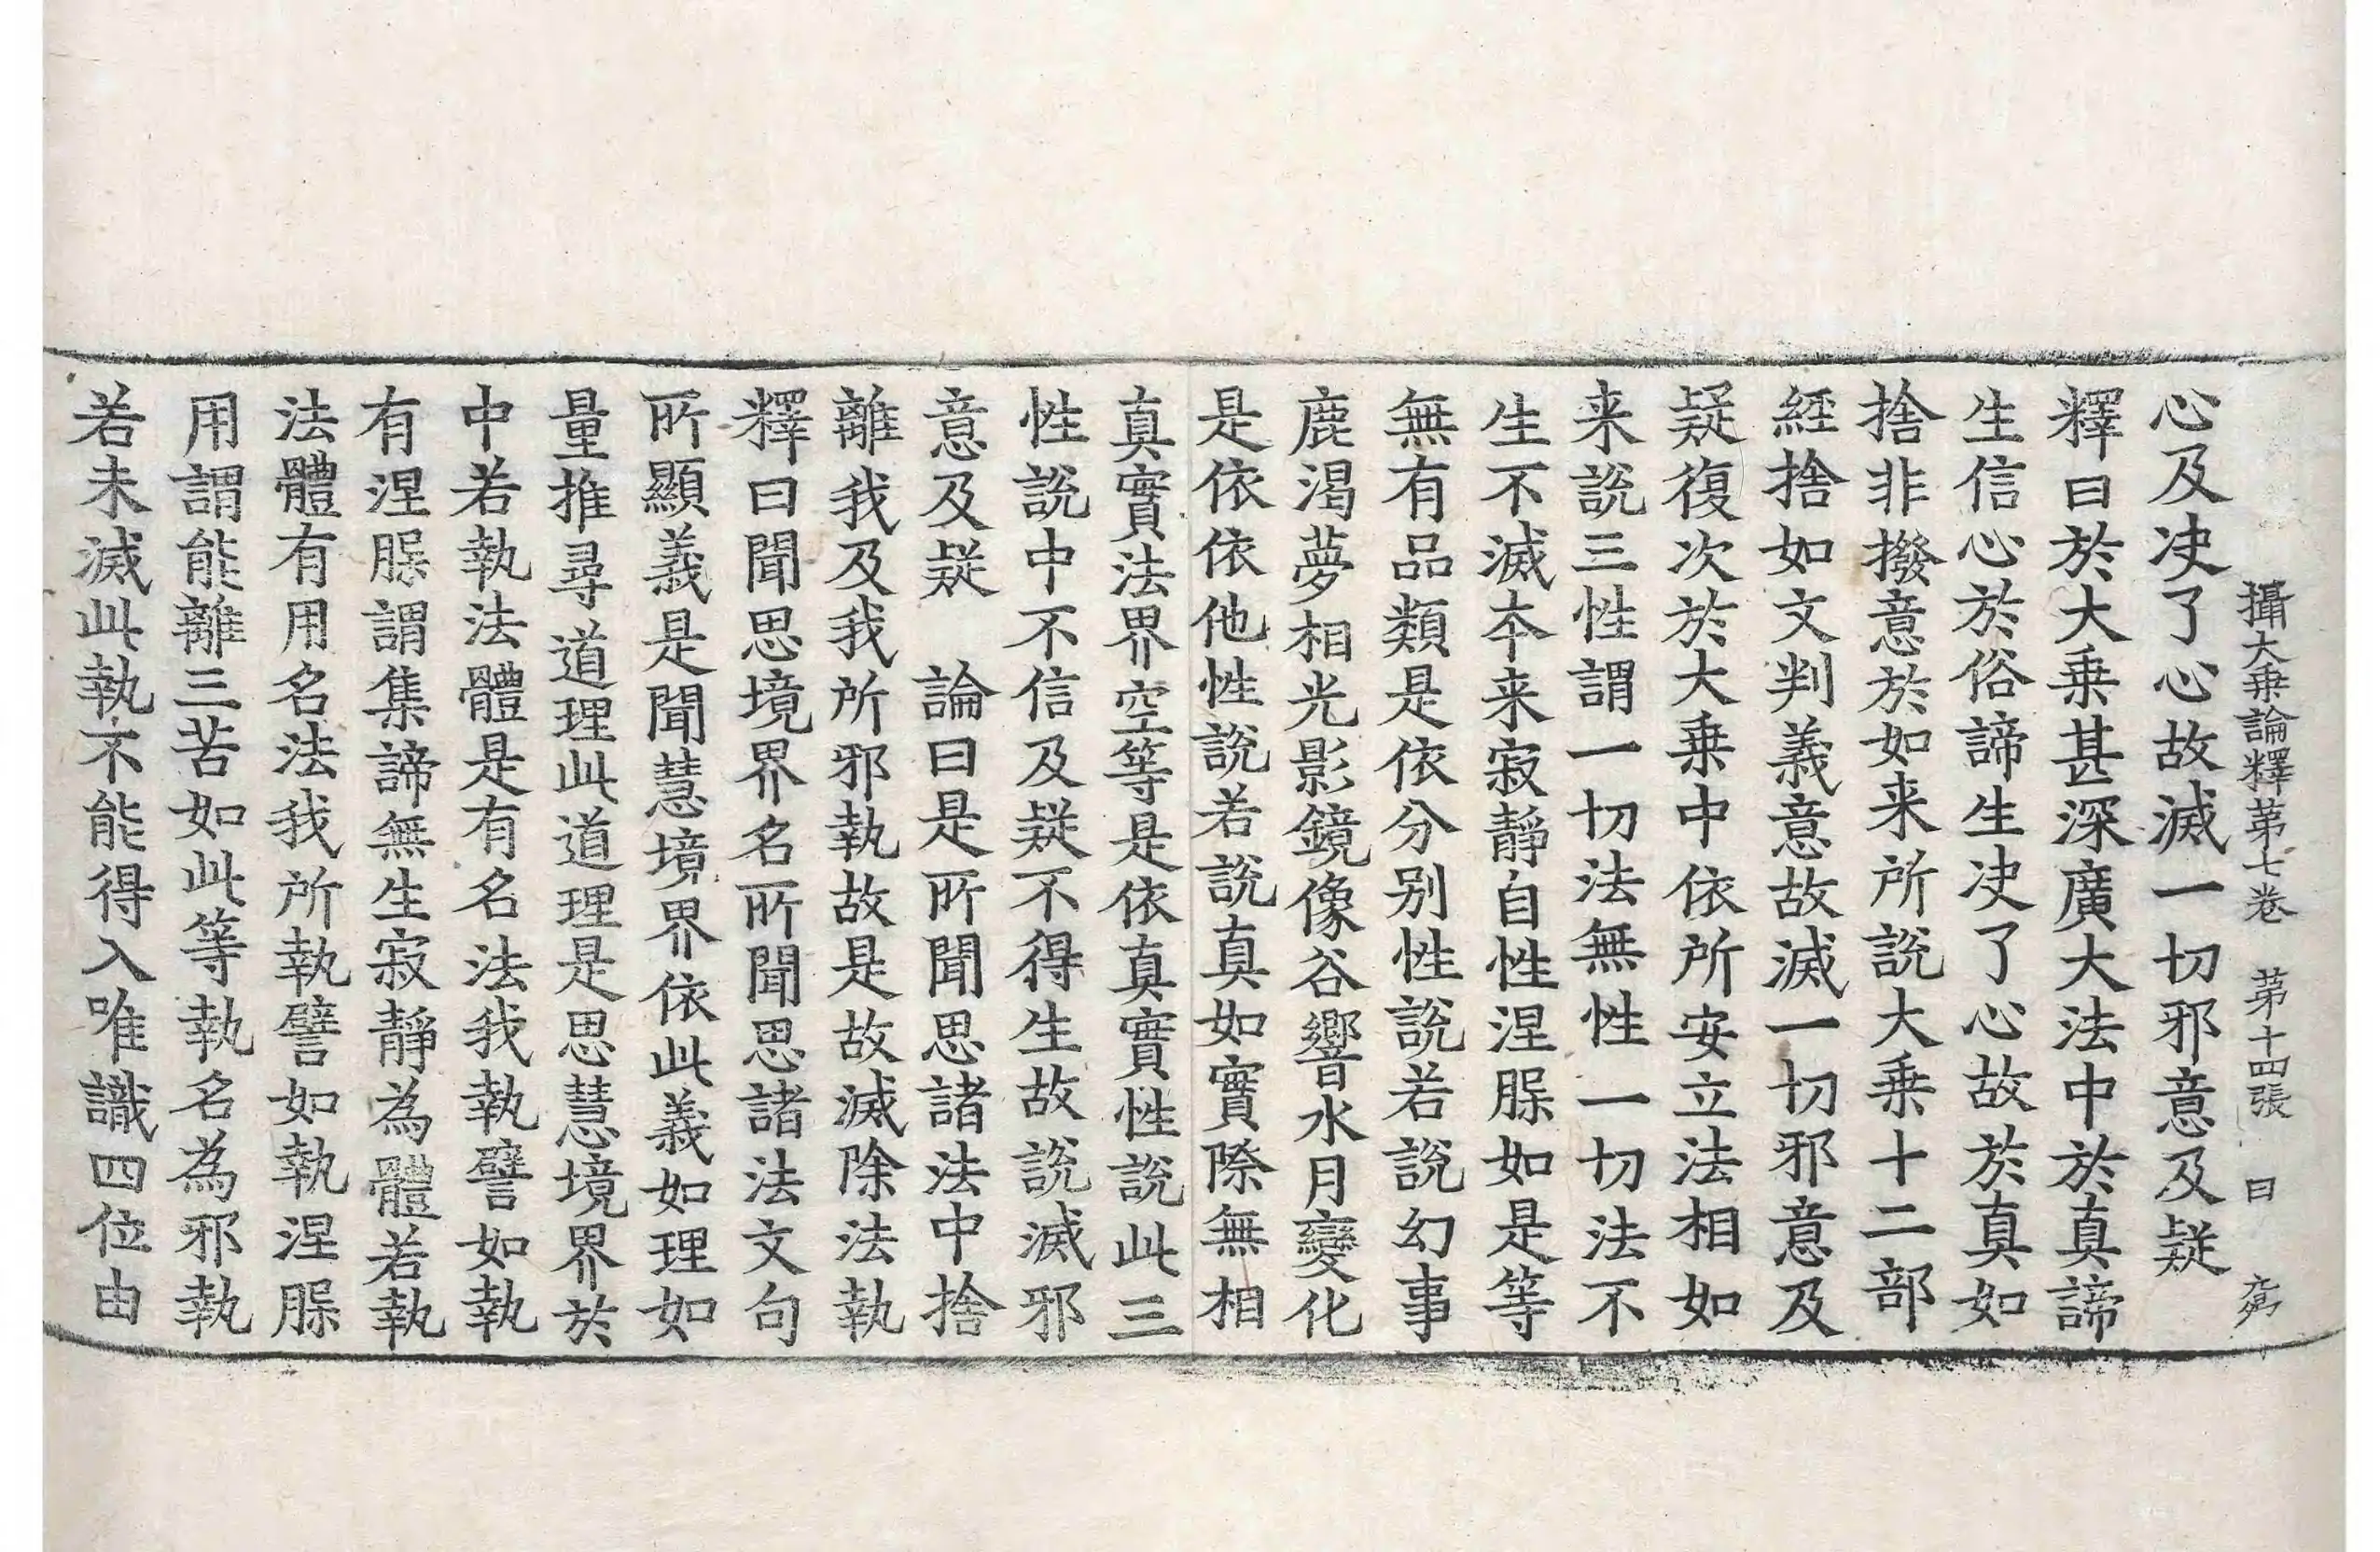 攝大乗論釋第七卷　第十四張　曰
心及决了心故滅一切邪意及疑
釋曰於大乗甚深廣大法中於真諦
生信心於俗諦生决了心故於真如
捨非撥意於如来所說大乗十二部
經捨如文判義意故滅一切邪意及
疑復次於大乗中依所安立法相如
来說三性謂一切法無性一切法不
生不滅夲来寂靜自性涅脲如是等
無有品類是依分别性說若說幻事
鹿渴夢相光影鏡像谷響水月變化
是依依他性說若說真如實際無相
真實法界空等是依真實性說此三
性說中不信及疑不得生故說滅邪
意及疑　論曰是所聞思諸法中捨
離我及我所邪執故是故滅除法執
釋曰聞思境界名所聞思諸法文句
所顯義是聞慧境界依此義如理如
量推尋道理此道理是思慧境界於
中若執法體是有名法我執譬如執
有涅脲謂集諦無生寂靜為體若執
法體有用名法我所執譬如執涅脲
用謂能離三苦如此等執名為邪執
若未滅此執不能得入唯識四位由